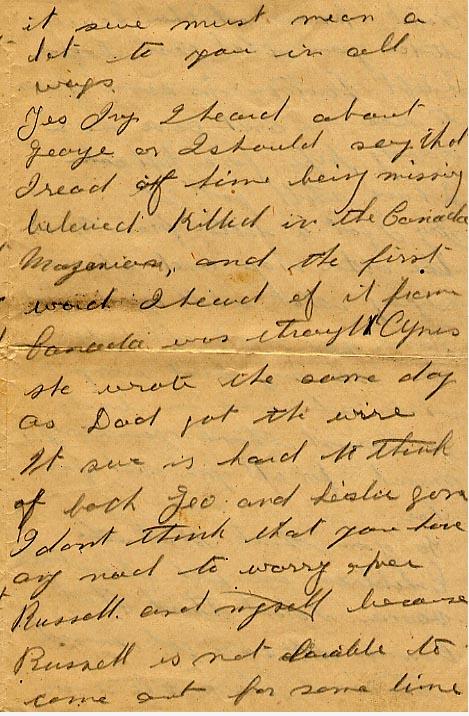 it sure must mean a
lot to you in all
ways.
Yes Ivy I heard about
George or I should say that
I read of time being missing
believed Killed in the Canada
Magazines, and the first
word I heard of it from
Canada was through
she wrote the same day
as Dad got the wire
It sure is hard to think
of both Geo and Leslie gone
I dont think that you have
any need to worry over
Russell. and myself because
Russell is not to
come out for some time